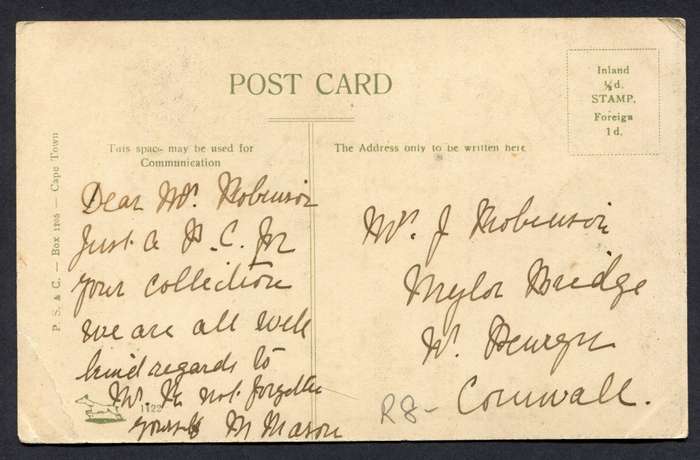 POST CARD
Inland
½d.
STAMP.
Foreign
1d.
This space may be used for
Communication
The Address only to be written here
P. S. & C. — Box 1205 — Cape Town
Dear Mrs. Robinson
Just a P. C. for
your collection
we are all well
kind regards to
Mr. R. not forgetting
yourself M Mason
1122
Mrs. J Robinson
Mylor Bridge
Nr. Penryn
Cornwall.
R8-